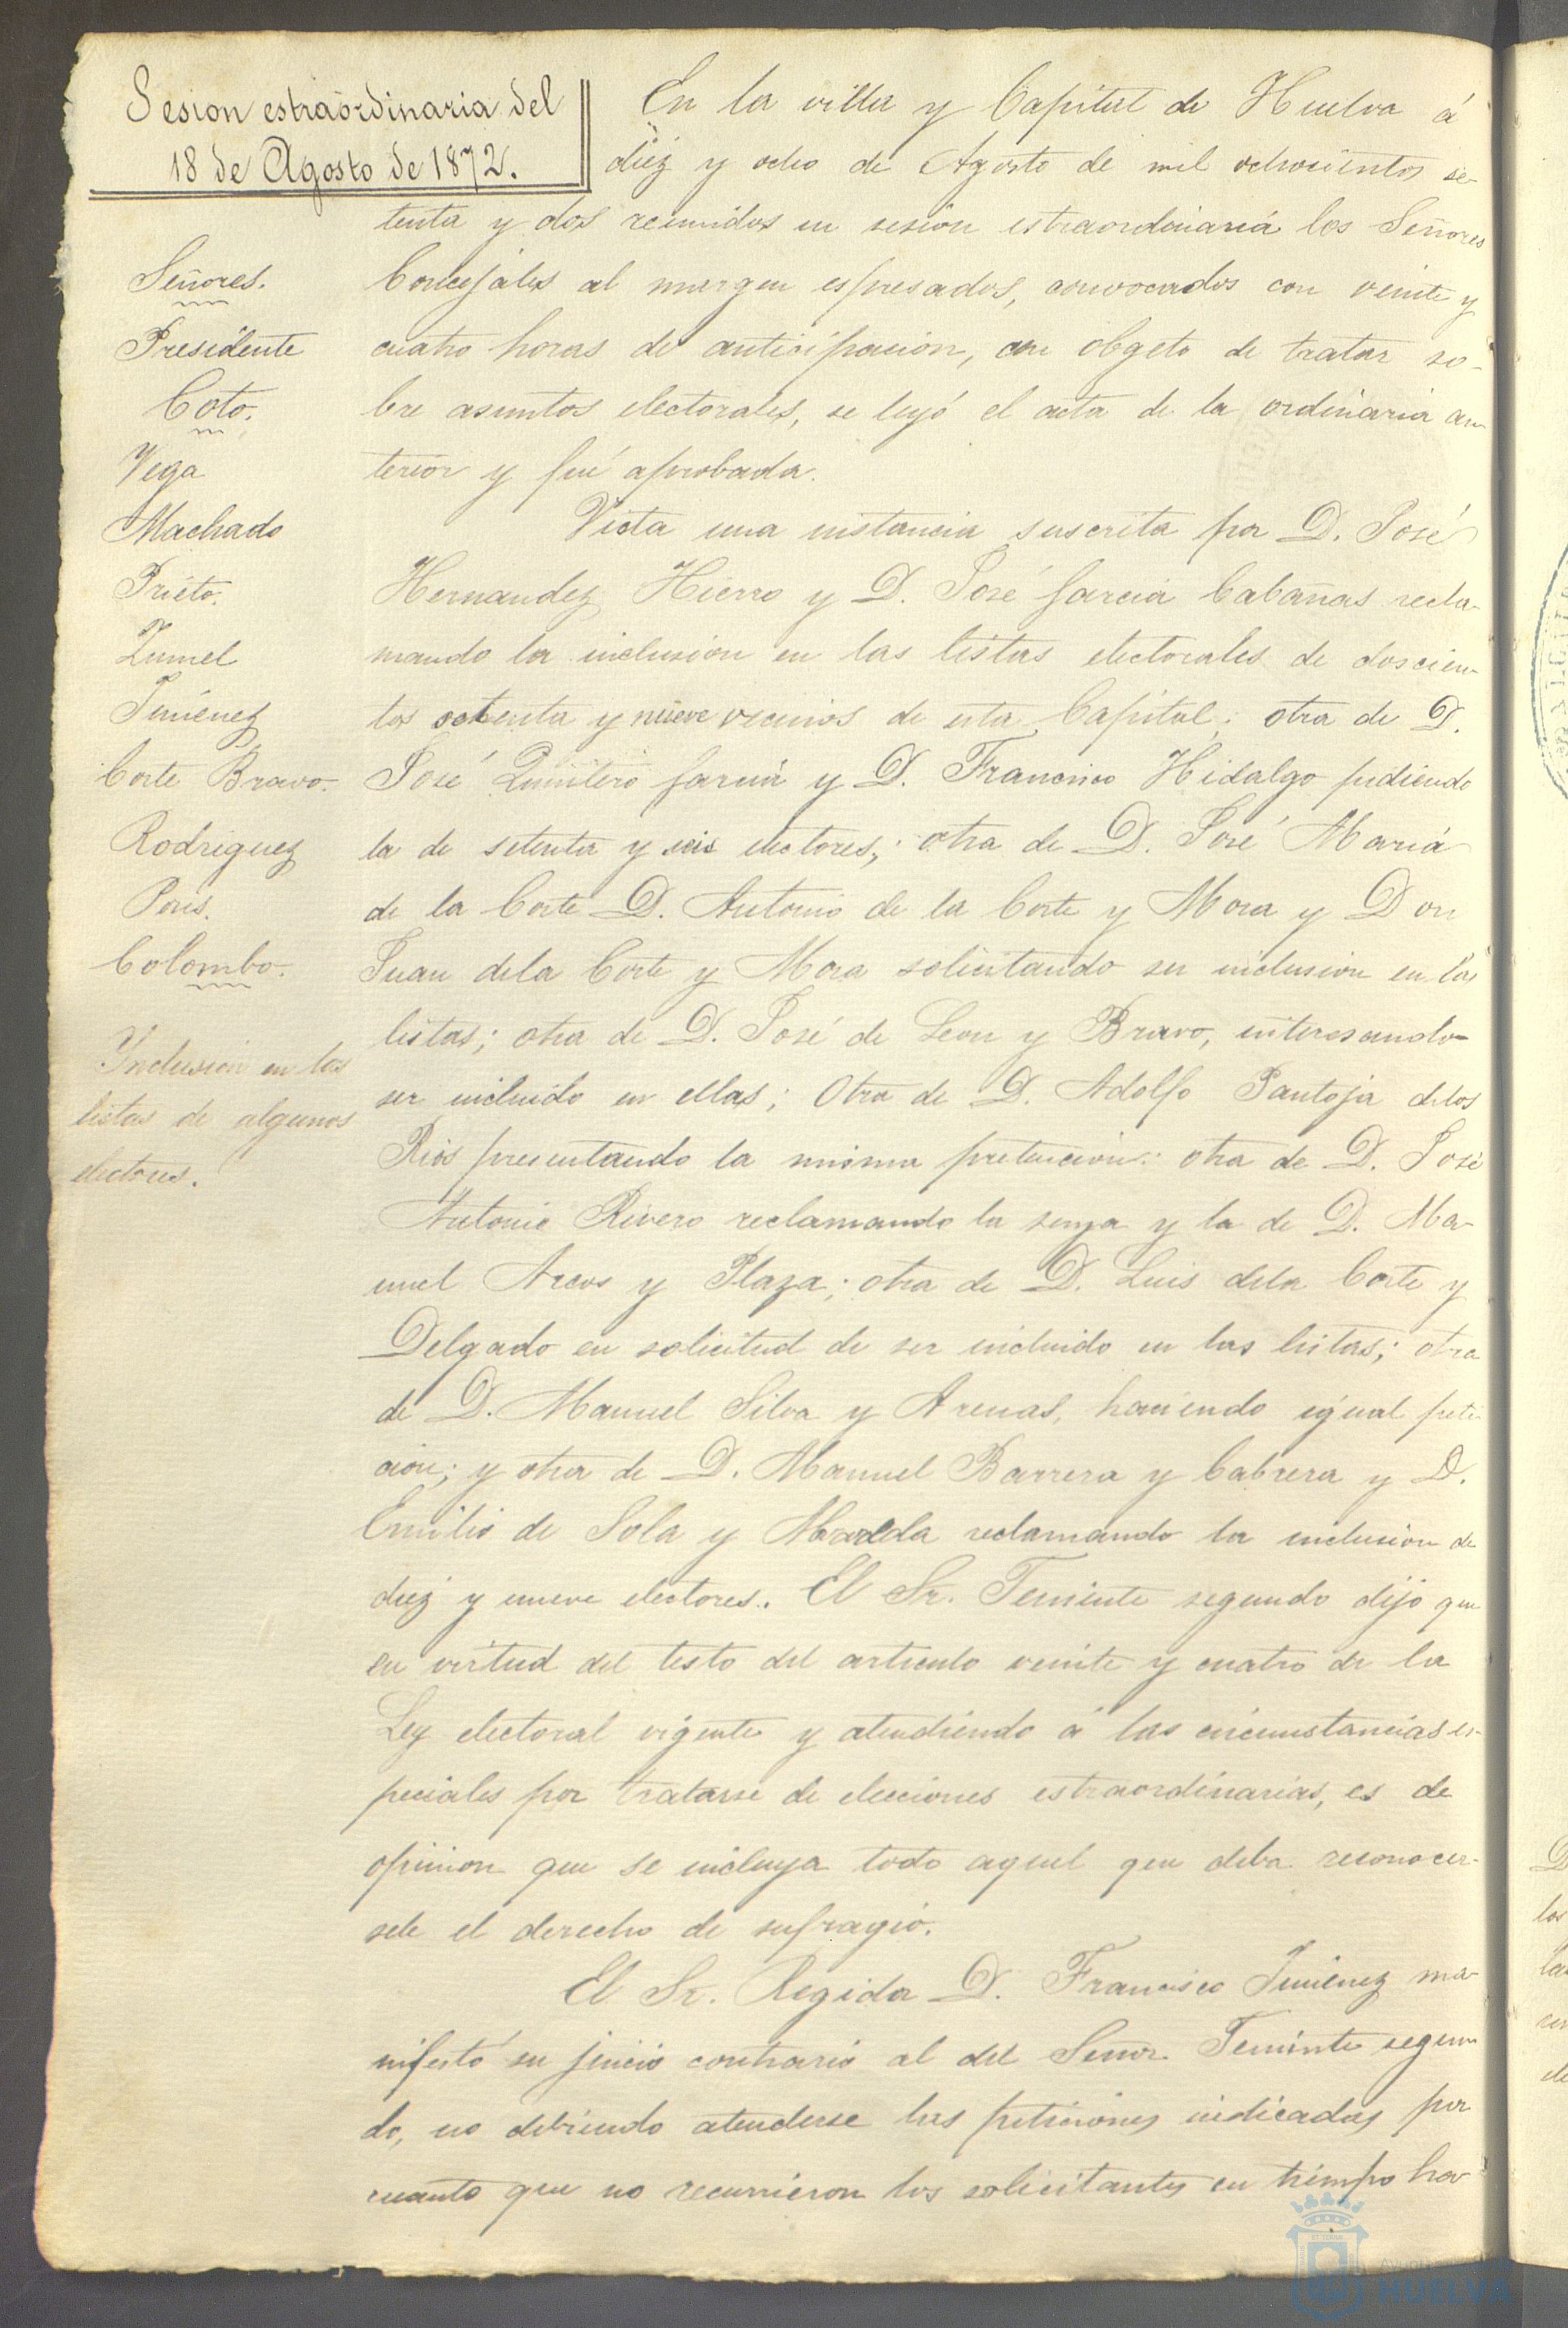 Sesion estraórdinaria del
18 de Agosto de 1872.
Señores.
Presidente
Coto.
Vega
Machado
Prieto.
Zumel
Jiménez
Corte Bravo.
Rodriguez
Peris.
Colombo.
Inclusion en las
listas de algunos
electores.
En la villa y Capital de Huelva á
diez y ocho de Agosto de mil ochocientos se-
tenta y dos reunidos en sesion estraordinaria los Señores
Concejales al margen espresados, convocados con veinte y
cuatro horas de anticipacion, con obgeto de tratar so-
bre asuntos electorales, se leyó el acta de la ordinaria an-
terior y fué aprobada.
Vista una instancia suscrita por D. José
Hernandez Hierro y D. José Garcia Cabañas recla-
mando la inclusion en las listas electorales de doscien-
tos ochenta y nueve vecinos de esta Capital; otra de D.
José Quintero Garcia y D. Francisco Hidalgo pidiendo
la de setenta y seis electores; otra de D. José Maria
de la Corte D. Antonio de la Corte y Mora y Don
Juan dela Corte y Mora solicitando su inclusion en las
listas; otra de D. José de Leon y Bravo, interesando
ser incluido en ellas; Otra de D. Adolfo Pantoja delos
Rios presentando la misma pretencion: otra de D. José
Antonio Rivero reclamando la suya y la de D. Ma-
nuel Arcos y Plaza; otra de D. Luis dela Corte y
Delgado en solicitud de ser incluido en las listas; otra
de D. Manuel Silva y Arenas, haciendo igual peti
cion; y otra de D. Manuel Barrera y Cabrera y D.
Emilio de Sola y reclamando la inclusion de
diez y nueve electores. El Sr. Teniente segundo dijo que
en virtud del testo del articulo veinte y cuatro de la
Ley electoral vigente y atendiendo á las circunstancias es-
peciales por tratarse de elecciones estraordinarias, es de
opinion que se incluya todo aquel que deba reconocer-
sele el derecho de sufragio.
El Sr. Regidor D. Francisco Jimenez ma-
nifestó su juicio contrario al del Señor Teniente segun
do, no debiendo atenderse las peticiones indicadas por
cuanto que no recurrieron los solicitantes en tiempo há-
HUELVA